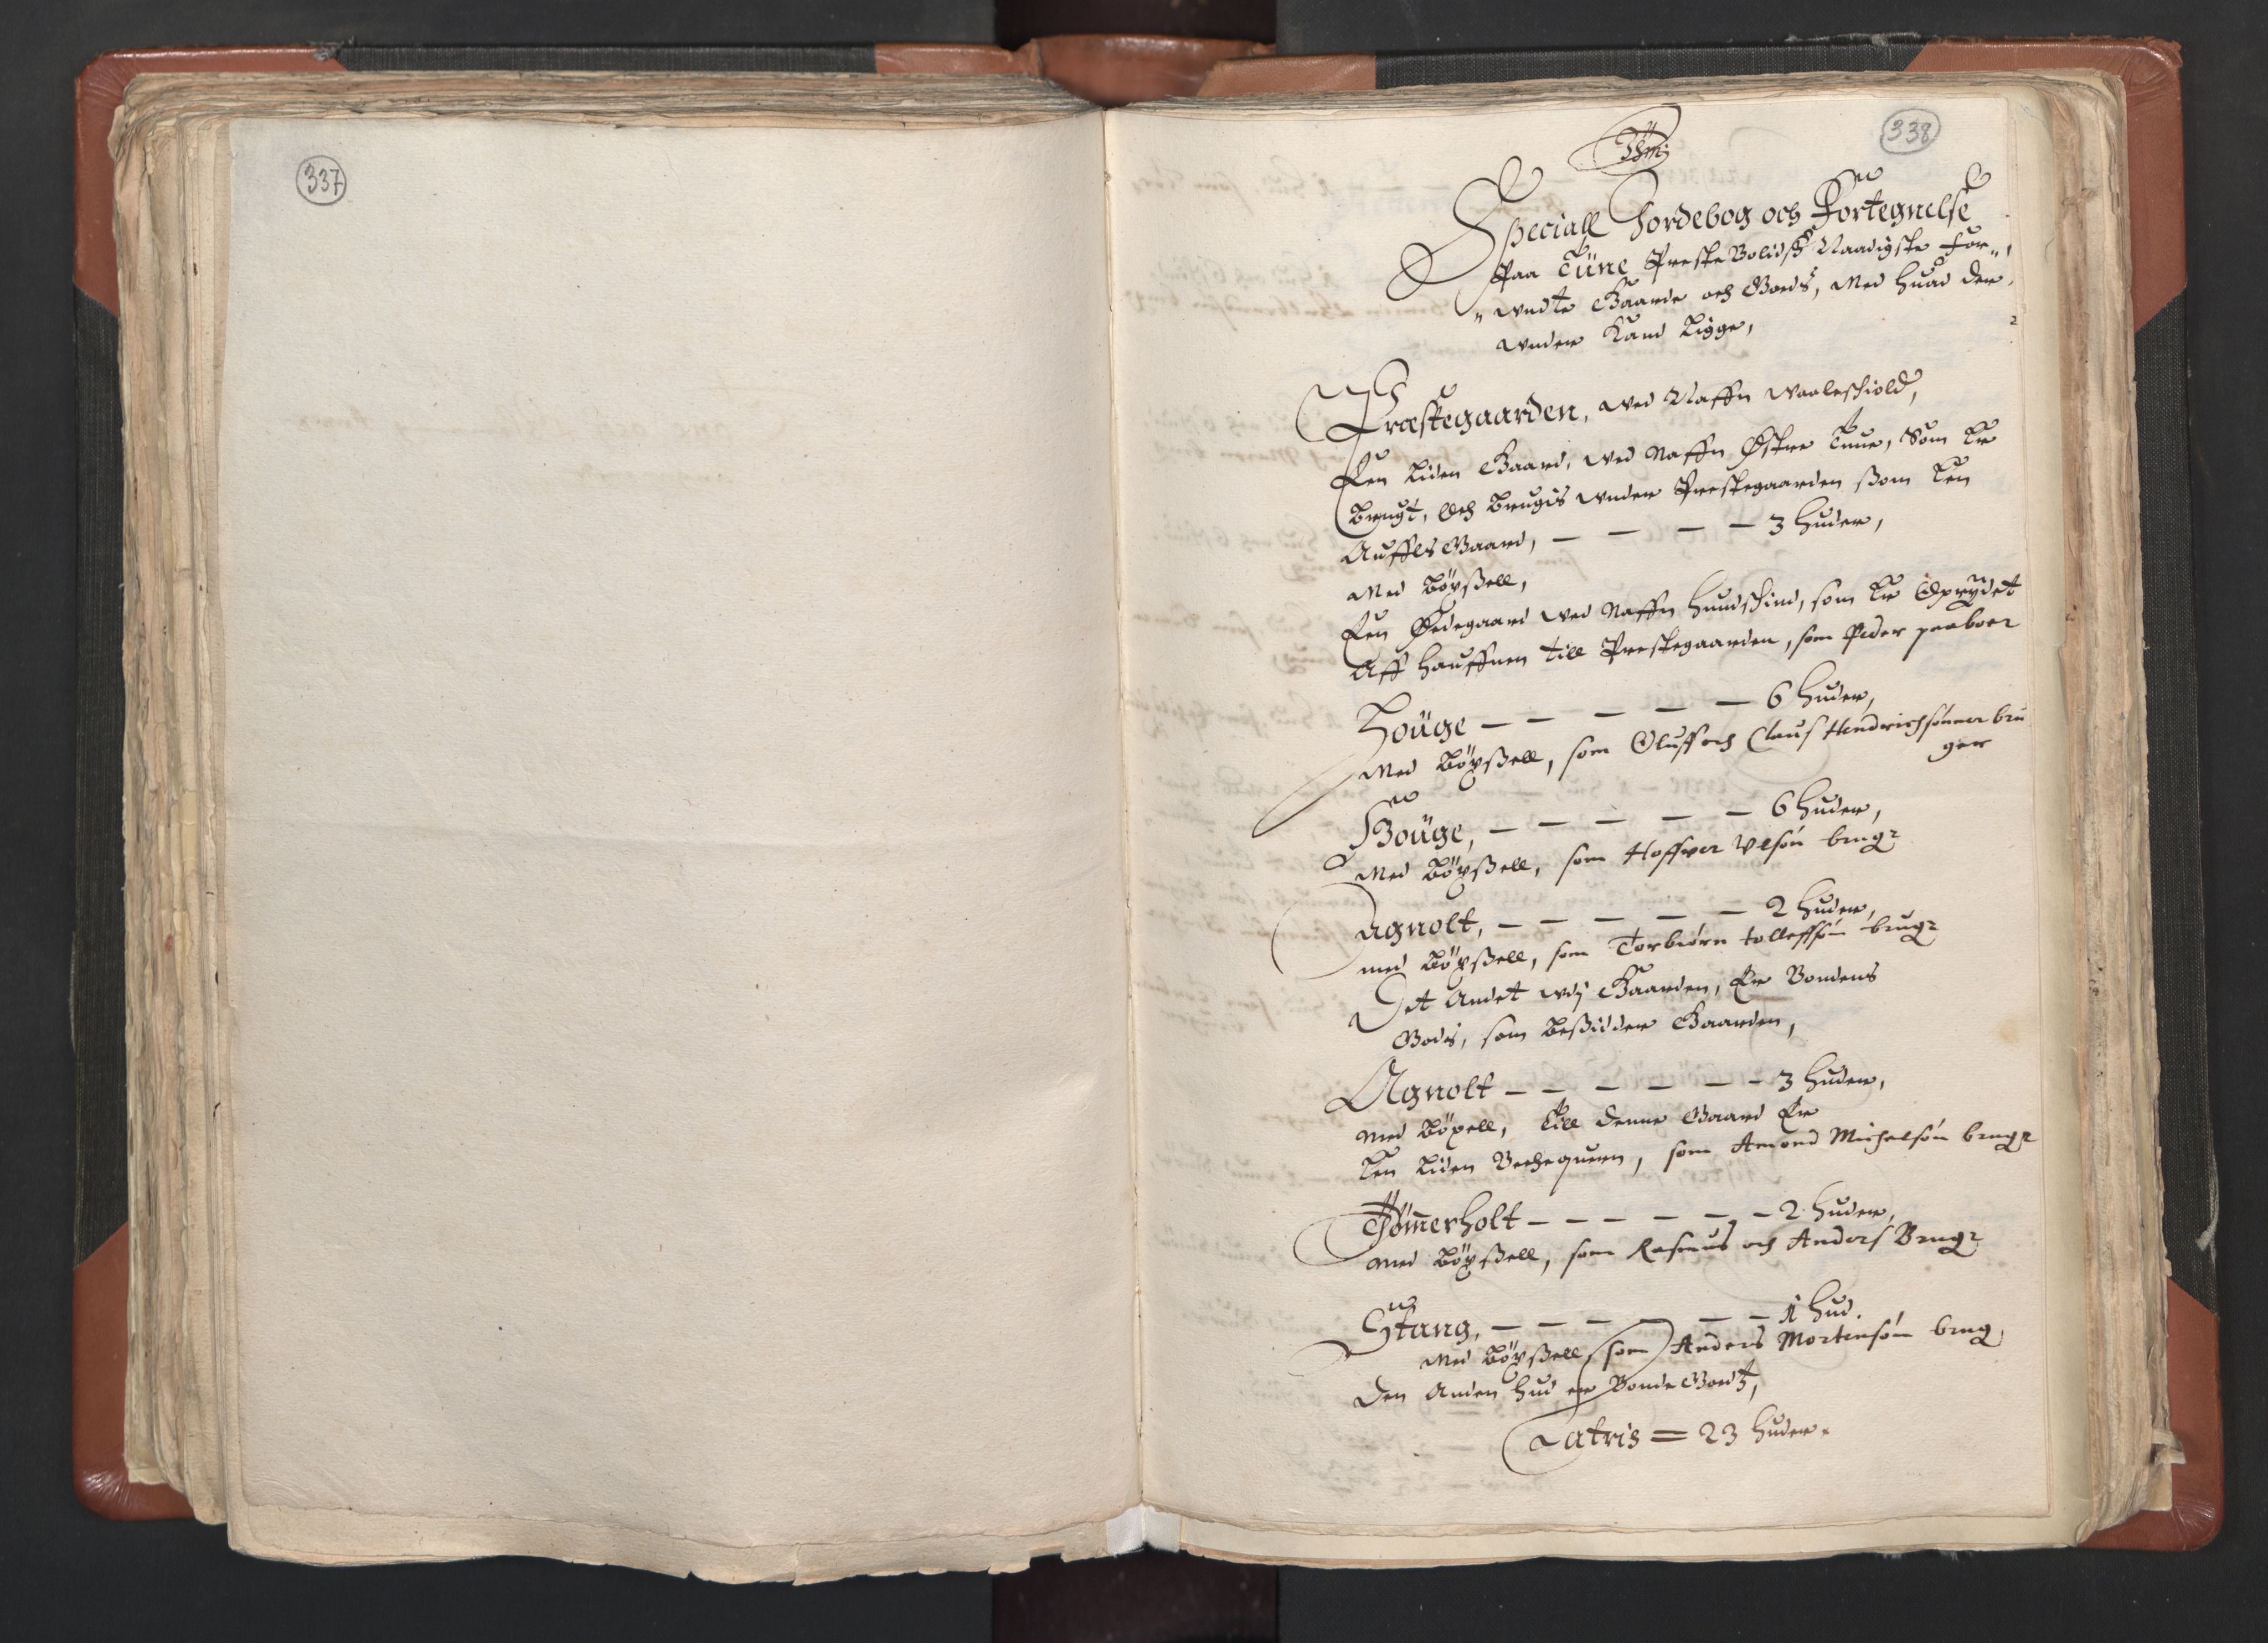 337
338
Speciall Jordebog och Fortegnelse
Paa Tüne Preste Bolidtz Naadigste For„
„undte Gaarde och Gods, Med huad der
under Kand Ligge,
Præstegaarden, ved Naffn Vaaleschiold,
Een Liden Gaard, ved Naffn Østre Tune, Som Er
Brugt, Och Brugis under Prestegaarden ßom Een
Auffls Gaard, — — — — 3 Huder,
Med Böxßell,
Een Ødegaard ved Naffn Hundschind, som Er Oprydet
Aff Hauffnen till Prestegaarden, som Peder paaboer
Houge — — — — — 6 Huder,
Med Böxßell, som Oluff och Claus Hendrichsønner bru
ger
Houge, — — — — — 6 Huder,
Med Böxßell, som Hoffuer Olsön brugr
Agnolt, — — — — — 2 Huder,
med Böxßell, som Torbiørn tolleffsön brugr
Det Andet udj Gaarden, Er Bondens
Gods, som beßidder Gaarden,
Agnolt — — — — — — 3 Huder,
med Böxell, Till denne Gaard Er
Een Liden Bechequern, som Amond Michelsön brugr
Tömmerholt — — — — — — 2 Huder,
med Böxßell, som Rasmus och Anders Brugr
Stang, — — — — — — 1 Hud.
Med Böxßell, som Anders Mortensön brug
Den Anden hud er Bonde Godtz,
Latris = 23 Huder.